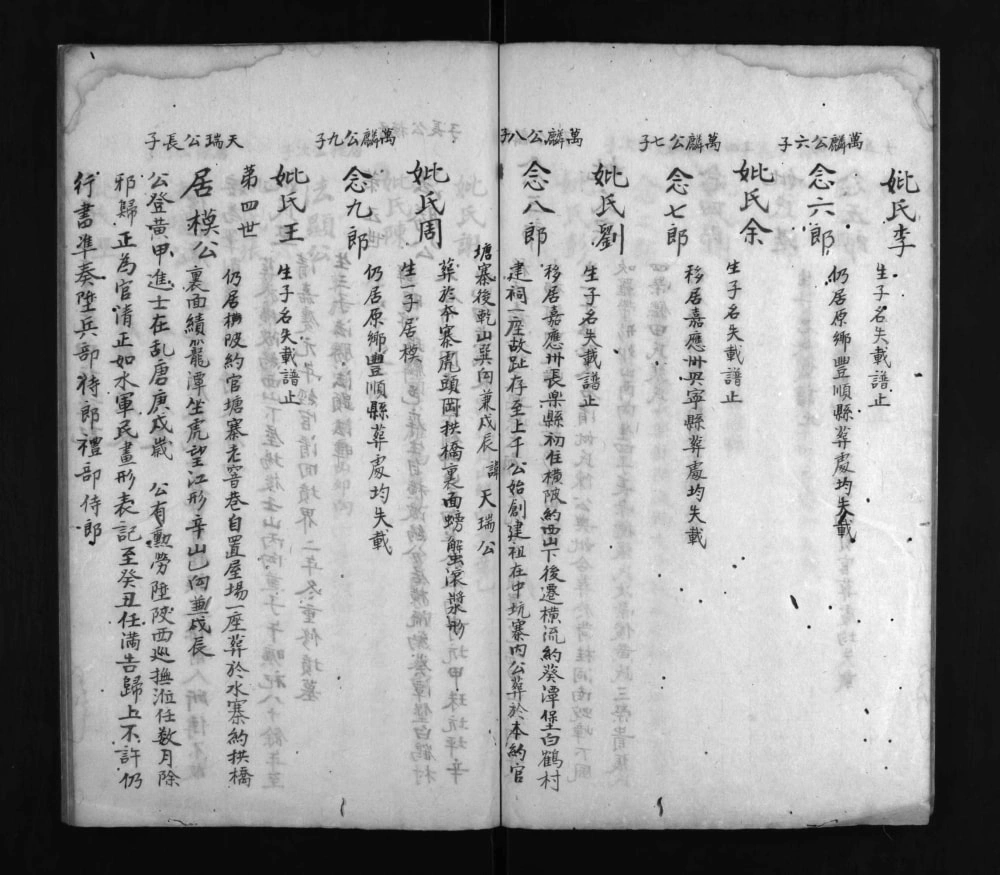 妣氏李
生子名失載譜止
萬麟公六子
念六郎
仍居原鄉豐順縣葬處均失載
妣氏余
生子名失載譜止
萬麟公七子
念七郎
移居嘉應州興寧縣葬處均失載
妣氏劉
生子名失載譜止
萬麟公八子
念八郎
移居嘉應州長樂縣初住橫陂約西山下後遷橫流約葵潭堡白鶴村
建祠一座故趾存至上千公始創建祖在中坑寨內公葬於本約官
塘寨後乾山巽向兼戍辰 諱天瑞公
妣氏周
葬於本寨虎頭岡拱橋裏面螃蟹滾漿形
生一子居模
萬麟公九子
念九郎
仍居原鄉豐順縣葬處均失載
妣氏王
生子名失載譜止
第四世
天瑞公長子
居模公
仍居橫陂約官塘寨老窖巷自置屋場一座葬於水寨約拱橋
裏面績龍潭坐虎望江形辛山向兼戍辰
公登黃甲進士在乱唐庚戍歲 公有勲勞陞陝西巡撫涖任数月除
邪歸正為官清正如水軍民畫形表記至癸丑任滿告歸上不許仍
行書準奏陞兵部待郎禮部侍郎